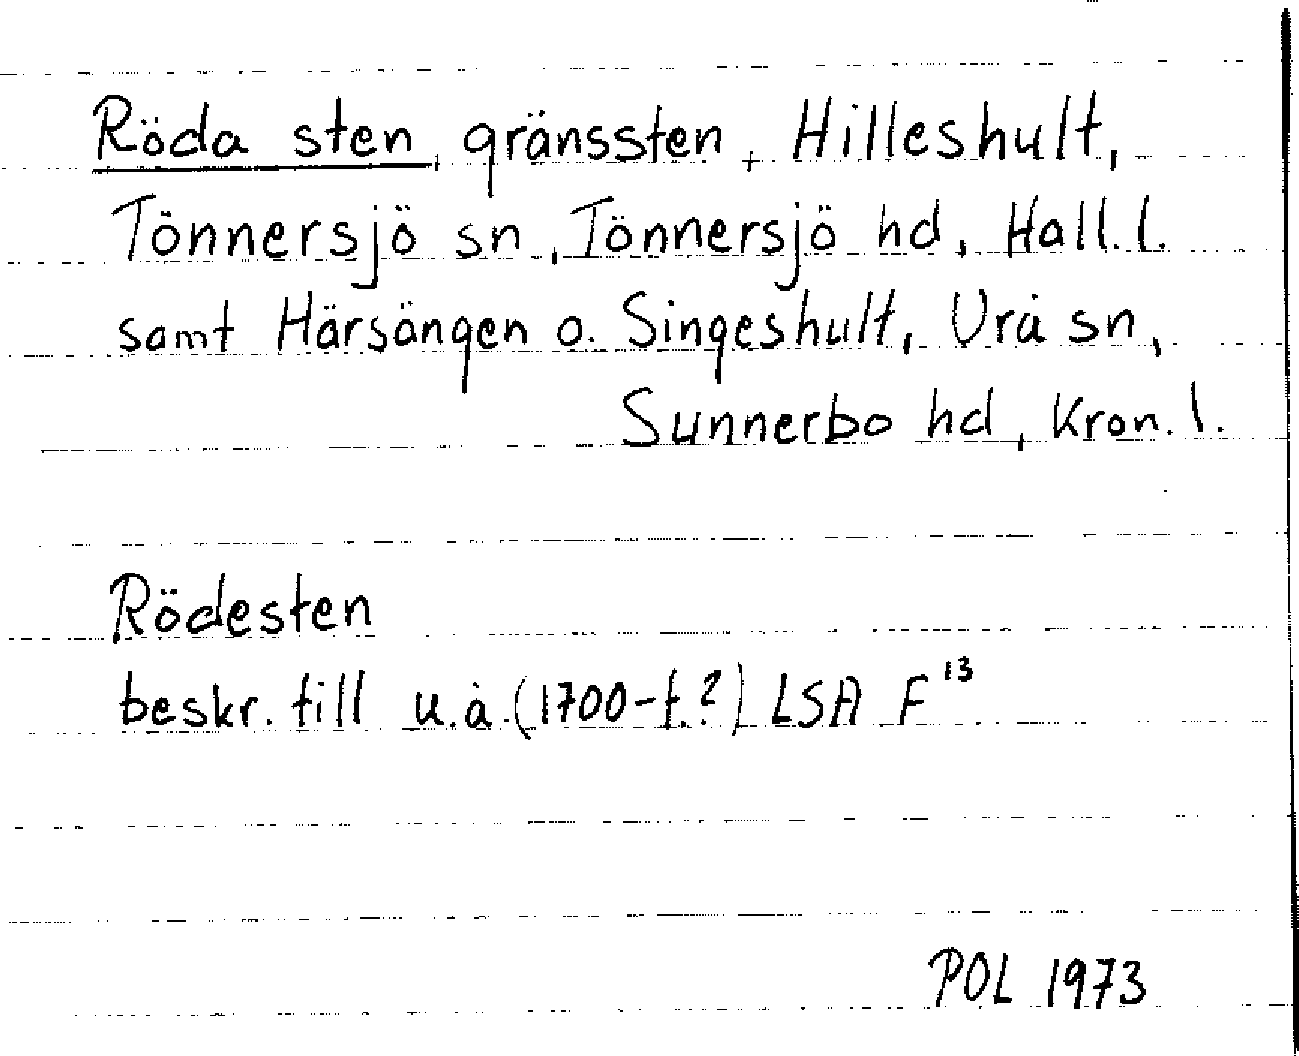 Röda sten, gränssten, Hilleshult,
Tönnersjö sn, Tönnersjö hd, Hall. l.
samt Härsängen o. Singeshult, Vrå sn,
Sunnerbo hd, Kron. l.
Rödesten
beskr. till u.å. (1700-t.?) LSA F¹³
POL 1973